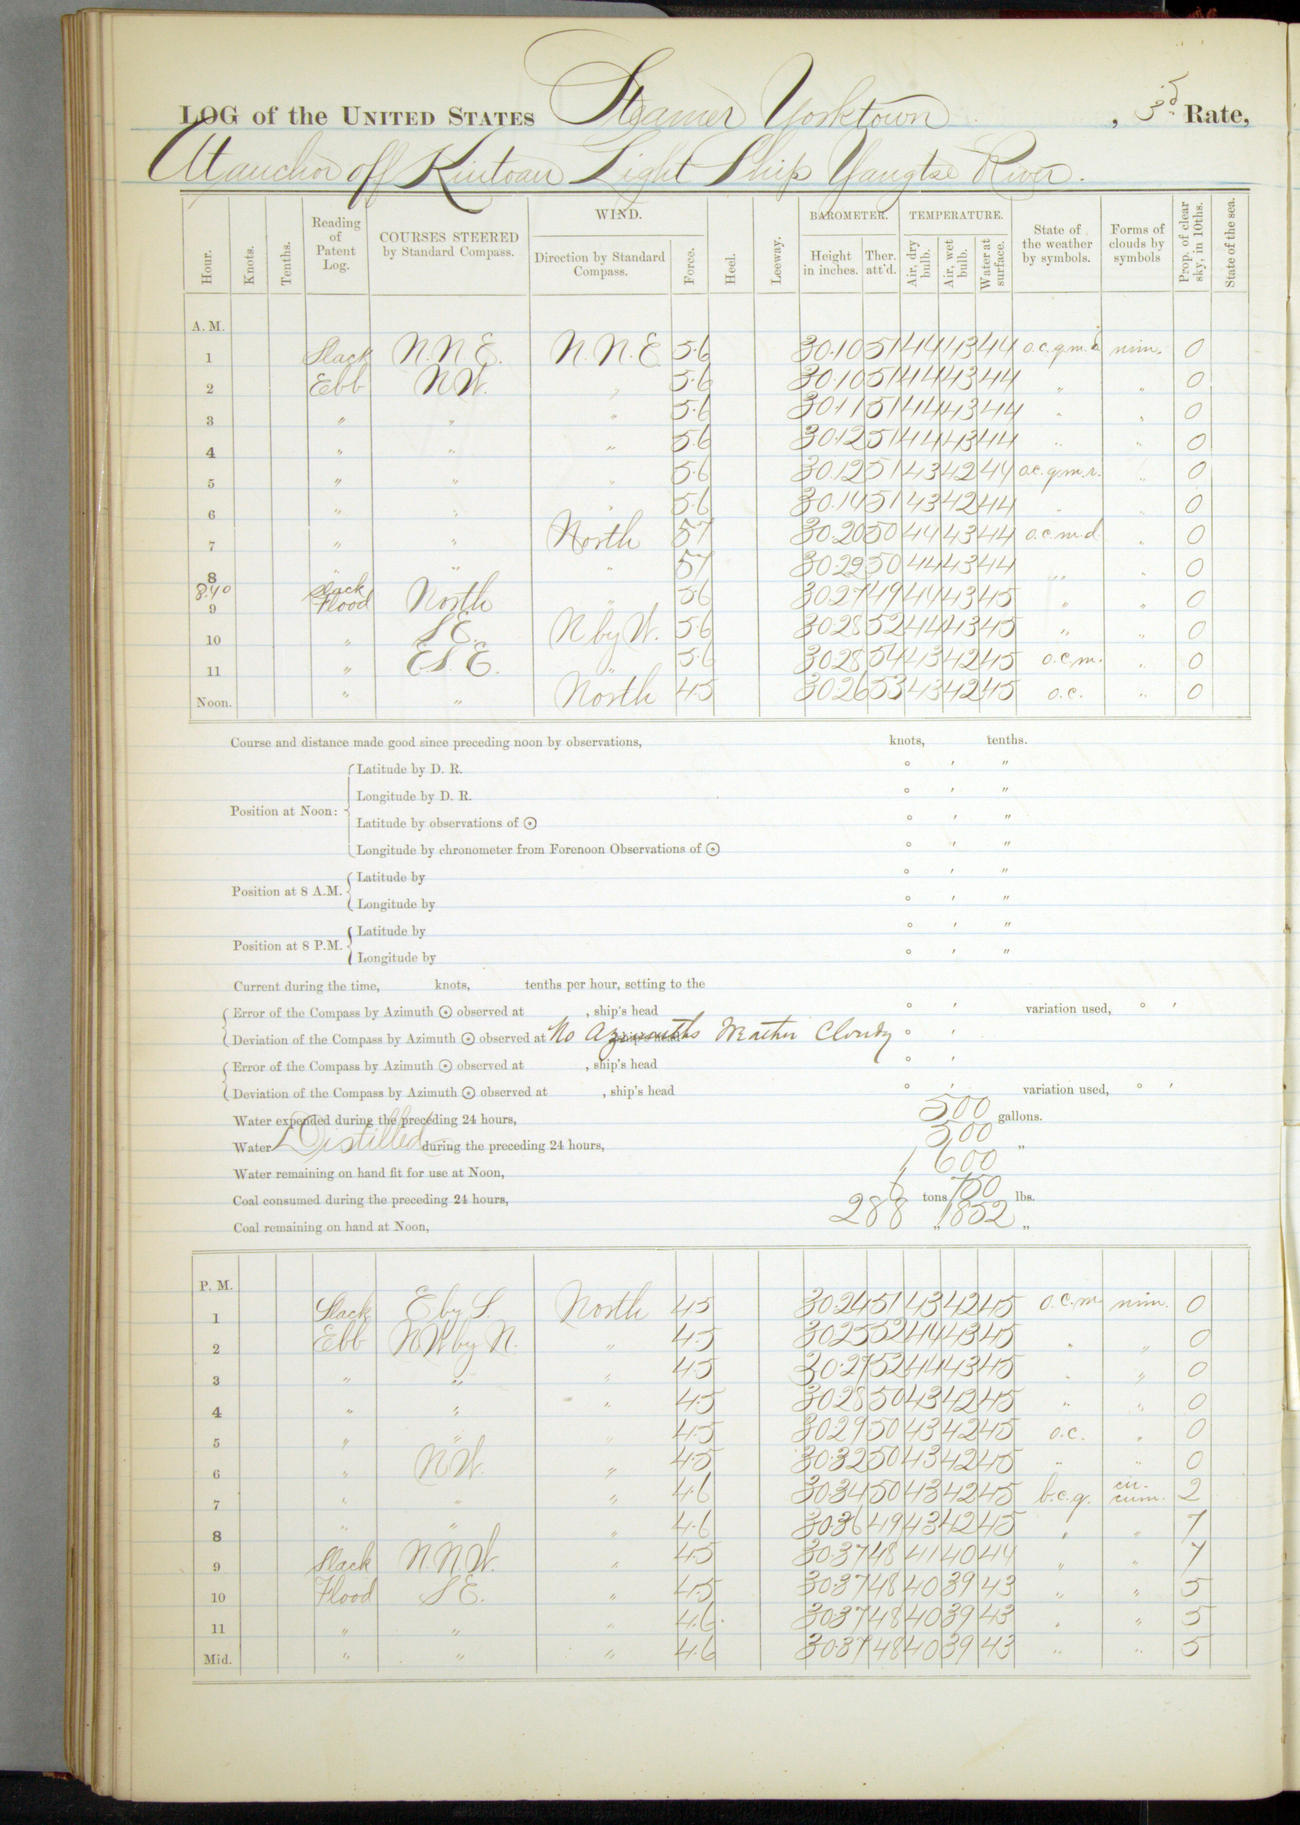 LOG of the UNITED STATES Steamer Yorktown, 3d Rate,
At anchor off Kintoan Light Ship Yangtse River.
Hour. Knots. Tenths. Reading of Patent Log. COURSES STEERED by Standard Compass. WIND. Direction by Standard Compass. Force. Heel. Leeway. BAROMETER. Height in inches. Ther. att'd. TEMPERATURE. Air, dry bulb. Air, wet bulb. Water at surface. State of the weather by symbols. Forms of clouds by symbols Prop. of clear sky, in 10ths. State of the sea.
A. M.
1 Slack N.N.E. N.N.E. 5.6 30.10 51 44 43 44 o.c.q.m.d nim. 0
2 Ebb NW. " 5.6 30.10 51 44 43 44 " " 0
3 " " " 5.6 30.11 51 44 43 44 " " 0
4 " " " 5.6 30.12 51 44 43 44 " " 0
5 " " " 5.6 30.12 51 43 42 44 o.c.q.m.r. " 0
6 " " " 5.6 30.14 51 43 42 44 " " 0
7 " " North 57 30.20 50 44 43 44 o.c.m.d. " 0
8 " " " 57 30.29 50 44 43 44 " " 0
8.40 Slack
9 Flood North " 5.6 30.27 49 44 43 45 " " 0
10 " SE. N by W. 5.6 30.28 52 44 43 45 " " 0
11 " E.S.E. " 5.6 30.28 54 43 42 45 o.c.m. " 0
Noon. " " North 4.5 30.26 53 43 42 45 o.c. " 0
Course and distance made good since preceding noon by observations, knots, tenths.
Position at Noon: Latitude by D. R. ° ′ ″
Longitude by D. R. ° ′ ″
Latitude by observations of ☉ ° ′ ″
Longitude by chronometer from Forenoon Observations of ☉ ° ′ ″
Position at 8 A.M. Latitude by ° ′ ″
Longitude by ° ′ ″
Position at 8 P.M. Latitude by ° ′ ″
Longitude by ° ′ ″
Current during the time, knots, tenths per hour, setting to the
Error of the Compass by Azimuth ☉ observed at , ship's head ° ′ variation used, ° ′
Deviation of the Compass by Azimuth ☉ observed at No Azimuths Weather Cloudy ° ′
Error of the Compass by Azimuth ☉ observed at , ship's head ° ′
Deviation of the Compass by Azimuth ☉ observed at , ship's head ° ′ variation used, ° ′
Water expended during the preceding 24 hours, 500 gallons.
Water Distilled during the preceding 24 hours, 300 "
Water remaining on hand fit for use at Noon, 1,600
Coal consumed during the preceding 24 hours, 6 tons 750 lbs.
Coal remaining on hand at Noon, 288 " 1852 "
P. M.
1 Slack E by S. North 4.5 30.24 51 43 42 45 o.c.m nim. 0
2 Ebb NW by N. " 4.5 30.25 52 44 43 45 " " 0
3 " " " 4.5 30.27 52 44 43 45 " " 0
4 " " " 4.5 30.28 50 43 42 45 " " 0
5 " " " 4.5 30.29 50 43 42 45 o.c. " 0
6 " NW. " 4.5 30.32 50 43 42 45 " " 0
7 " " " 4.6 30.34 50 43 42 45 b.c.q. cir-cum. 2
8 " " " 4.6 30.36 49 43 42 45 " " 7
9 Slack N.N.W. " 4.5 30.37 48 41 40 44 " " 7
10 Flood SE. " 4.5 30.37 48 40 39 43 " " 5
11 " " " 4.6 30.37 48 40 39 43 " " 5
Mid. " " " 4.6 30.37 48 40 39 43 " " 5